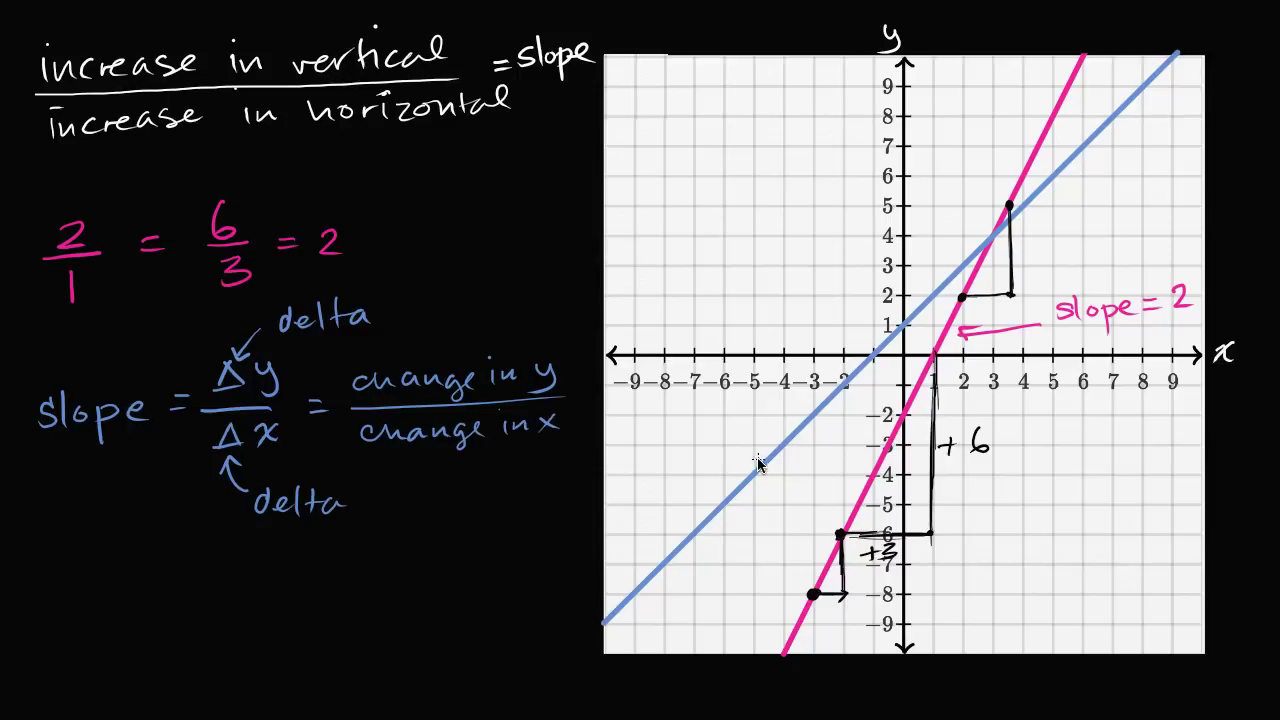 increase in vertical
increase in horizontal
= slope
2/1 = 6/3 = 2
delta
slope = Δy/Δx = change in y/change in x
delta
y
9
8
7
6
5
4
3
2
1
x
−9 −8 −7 −6 −5 −4 −3 −2 1 2 3 4 5 6 7 8 9
−2
−3
−4
−5
−6
−7
−8
−9
slope = 2
+ 6
+3